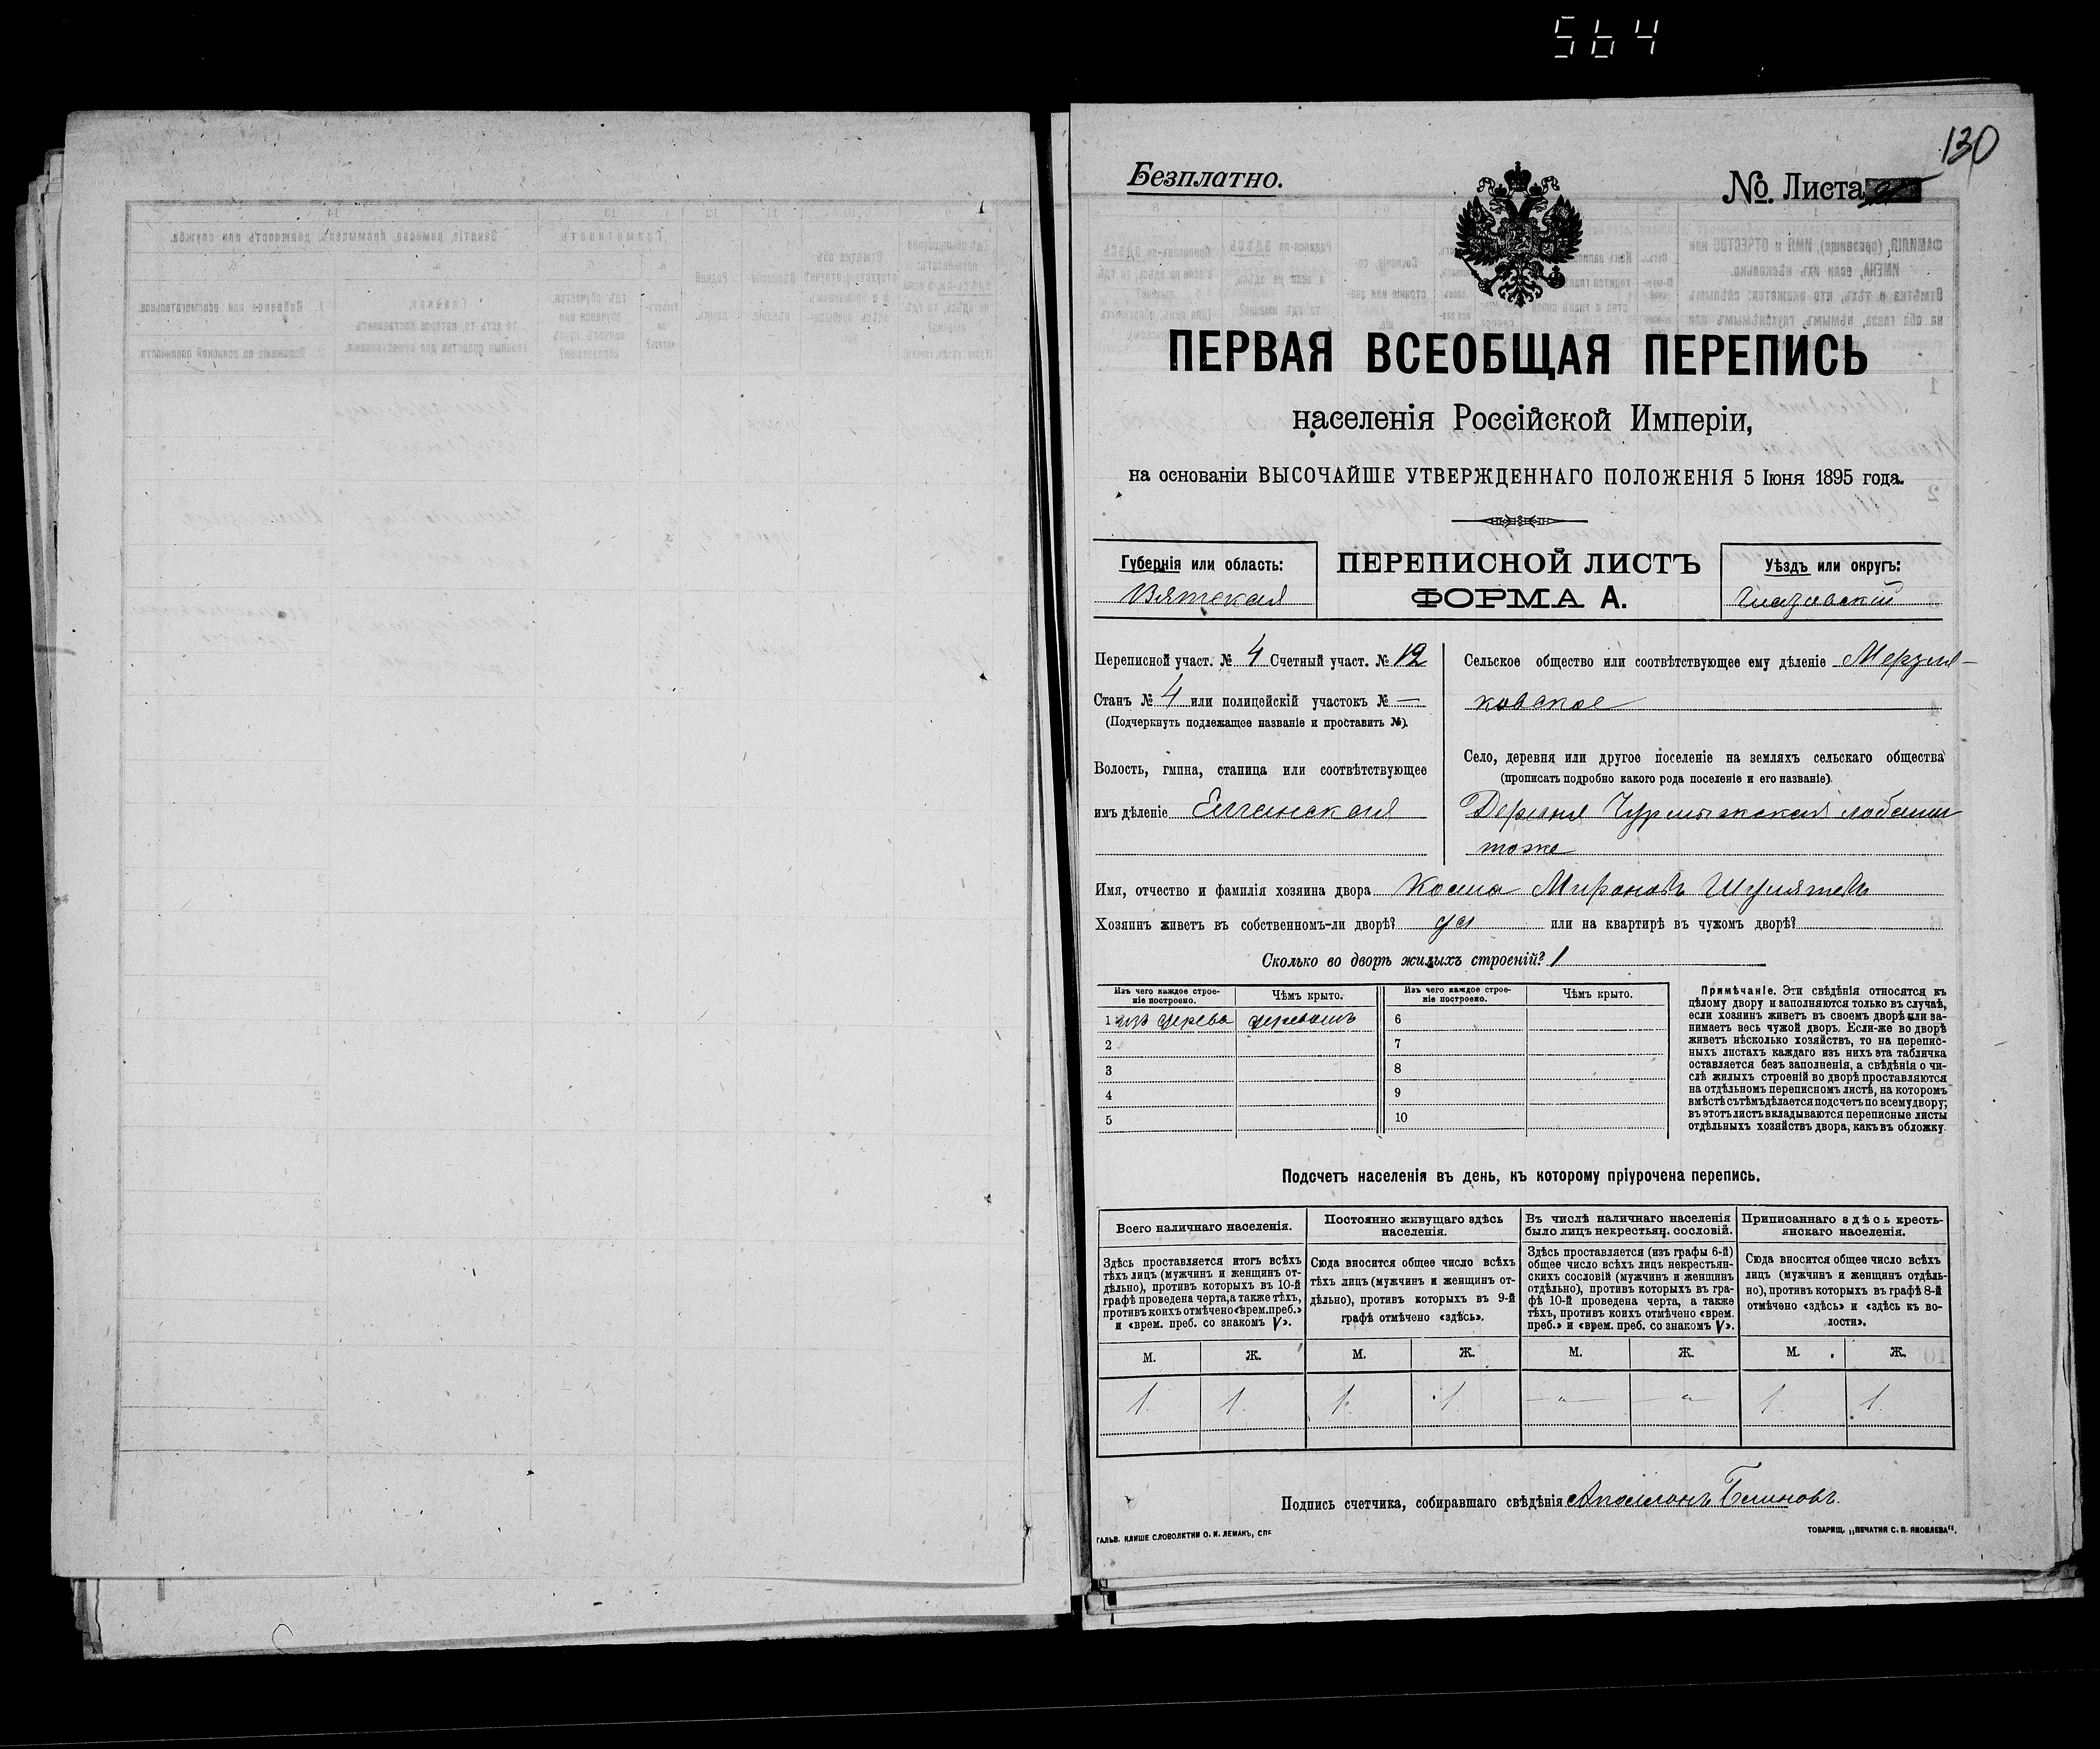 564
130
Безплатно.
№. Листа
ПЕРВАЯ ВСЕОБЩАЯ ПЕРЕПИСЬ
населенія Россійской Имперіи,
на основаніи ВЫСОЧАЙШЕ УТВЕРЖДЕННАГО ПОЛОЖЕНІЯ 5 Іюня 1895 года.
Губернія или область:
Вятская
ПЕРЕПИСНОЙ ЛИСТЪ
ФОРМА А.
Уѣздъ или округъ:
Глазовскій
Переписной участ. № 4 Счетный участ. № 12
Станъ № 4 или полицейскій участокъ № —
(Подчеркнуть подлежащее названіе и проставить №).
Волость, гмина, станица или соотвѣтствующее
имъ дѣленіе Елганская
Сельское общество или соотвѣтствующее ему дѣленіе Мерзля-
ковское
Село, деревня или другое поселеніе на земляхъ сельскаго общества
(прописать подробно какого рода поселеніе и его названіе).
Деревня
тоже
Имя, отчество и фамилія хозяина двора Косма Мироновъ Шулятевъ
Хозяинъ живетъ въ собственномъ-ли дворѣ? да или на квартирѣ въ чужомъ дворѣ?
Сколько во дворѣ жилыхъ строеній? 1
Изъ чего каждое строе-
ніе построено.
Чѣмъ крыто.
Изъ чего каждое строе-
ніе построено.
Чѣмъ крыто.
1 изъ дерева деревомъ 6
2 7
3 8
4 9
5 10
Примѣчаніе. Эти свѣдѣнія относятся къ
цѣлому двору и заполняются только въ случаѣ,
если хозяинъ живетъ въ своемъ дворѣ или за-
нимаетъ весь чужой дворъ. Если-же во дворѣ
живетъ нѣсколько хозяйствъ, то на перепис-
ныхъ листахъ каждаго изъ нихъ эта табличка
оставляется безъ заполненія, а свѣдѣнія о чи-
слѣ жилыхъ строеній во дворѣ проставляются
на отдѣльномъ переписномъ листѣ, на которомъ
вмѣстѣ съ тѣмъ дѣлается подсчетъ по всему двору;
въ этотъ листъ вкладываются переписные листы
отдѣльныхъ хозяйствъ двора, какъ въ обложку.
Подсчетъ населенія въ день, къ которому пріурочена перепись.
Всего наличнаго населенія.
Здѣсь проставляется итогъ всѣхъ
тѣхъ лицъ (мужчинъ и женщинъ от-
дѣльно), противъ которыхъ въ 10-й
графѣ проведена черта, а также тѣхъ,
противъ коихъ отмѣчено «врем. преб.»
и «врем. преб. со знакомъ V».
Постоянно живущаго здѣсь
населенія.
Сюда вносится общее число всѣхъ
тѣхъ лицъ (мужчинъ и женщинъ от-
дѣльно), противъ которыхъ въ 9-й
графѣ отмѣчено «здѣсь».
Въ числѣ наличнаго населенія
было лицъ некрестьян. сословій.
Здѣсь проставляется (изъ графы 6-й)
общее число всѣхъ лицъ некрестьян-
скихъ сословій (мужчинъ и женщинъ
отдѣльно), противъ которыхъ въ гра-
фѣ 10-й проведена черта, а также
тѣхъ, противъ коихъ отмѣчено «врем.
преб.» и «врем. преб. со знакомъ V».
Приписаннаго здѣсь кресть-
янскаго населенія.
Сюда вносится общее число всѣхъ
лицъ (мужчинъ и женщинъ отдѣль-
но), противъ которыхъ въ графѣ 8-й
отмѣчено «здѣсь» и «здѣсь къ во-
лости».
М. Ж. М. Ж. М. Ж. М. Ж.
1. 1. 1. 1. —"— —"— 1. 1.
Подпись счетчика, собиравшаго свѣдѣнія Аполлонъ Блиновъ.
ГАЛЬВ. КЛИШЕ СЛОВОЛИТНИ О. И. ЛЕМАНЪ, СПБ
ТОВАРИЩ. „ПЕЧАТНЯ С. П. ЯКОВЛЕВА".